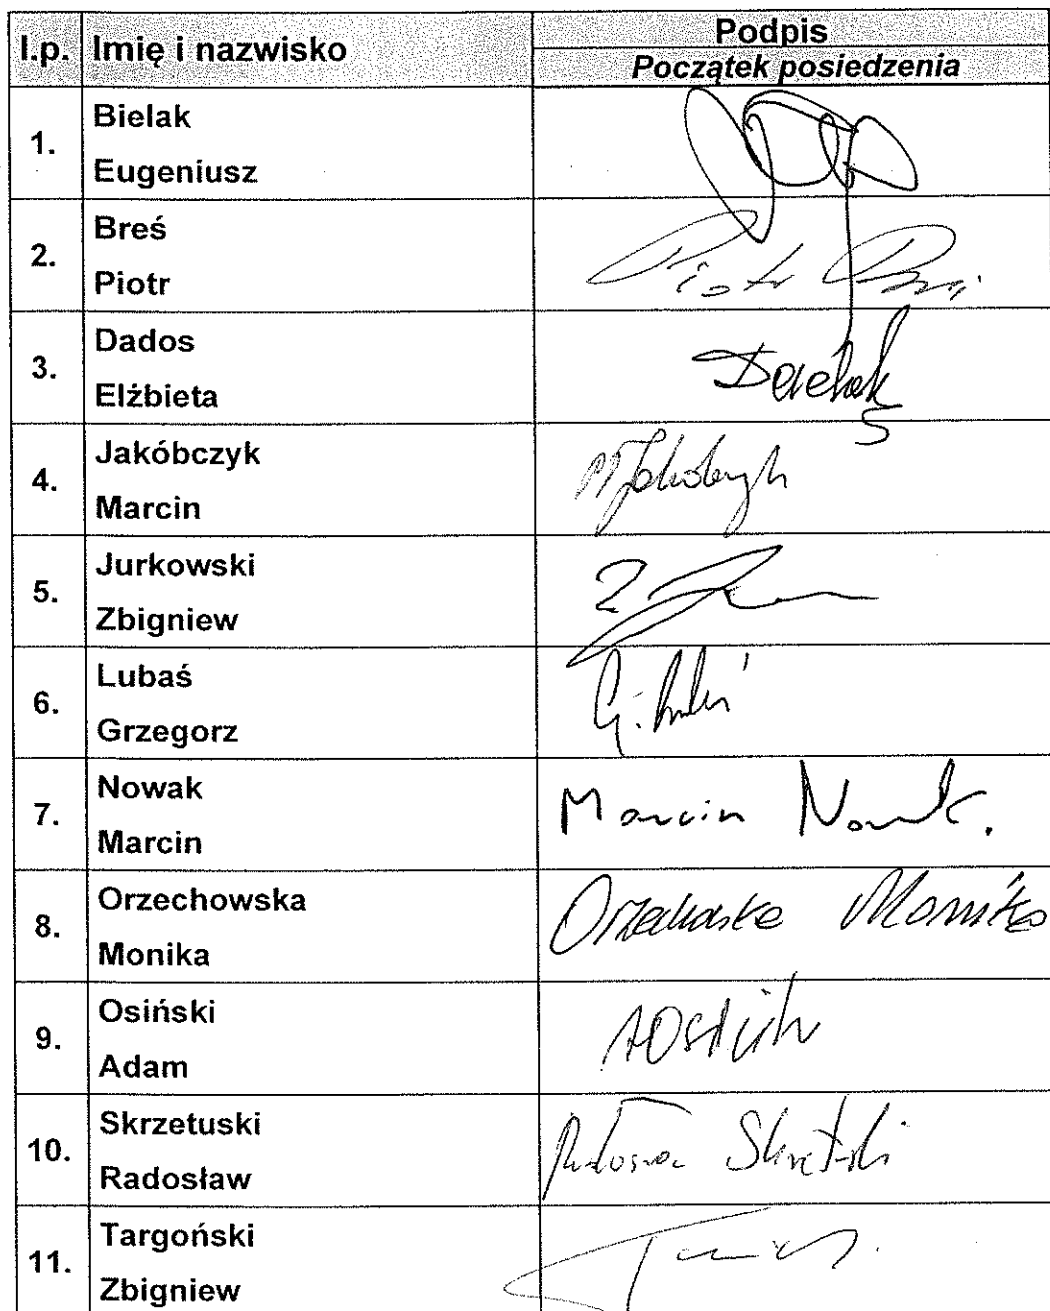 l.p. Imię i nazwisko Podpis
Początek posiedzenia
1. Bielak
Eugeniusz
2. Breś
Piotr
Piotr Breś
3. Dados
Elżbieta
4. Jakóbczyk
Marcin
M Jakóbczyk
5. Jurkowski
Zbigniew
6. Lubaś
Grzegorz
G. Lubaś
7. Nowak
Marcin
Marcin Nowak.
8. Orzechowska
Monika
Orzechowska Monika
9. Osiński
Adam
10. Skrzetuski
Radosław
Radosław Skrzetuski
11. Targoński
Zbigniew